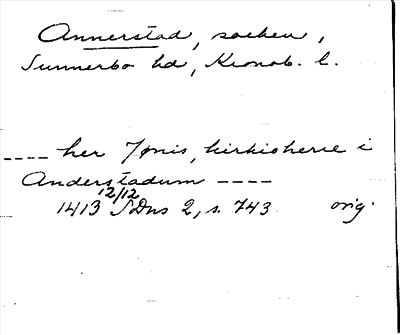 Annerstad, socken,
Sunnerbo hd, Kronob. l.
---- her Jønis, kirkioherre i
Anderstadum ----
1413 12/12 SDns 2, s. 743 orig.